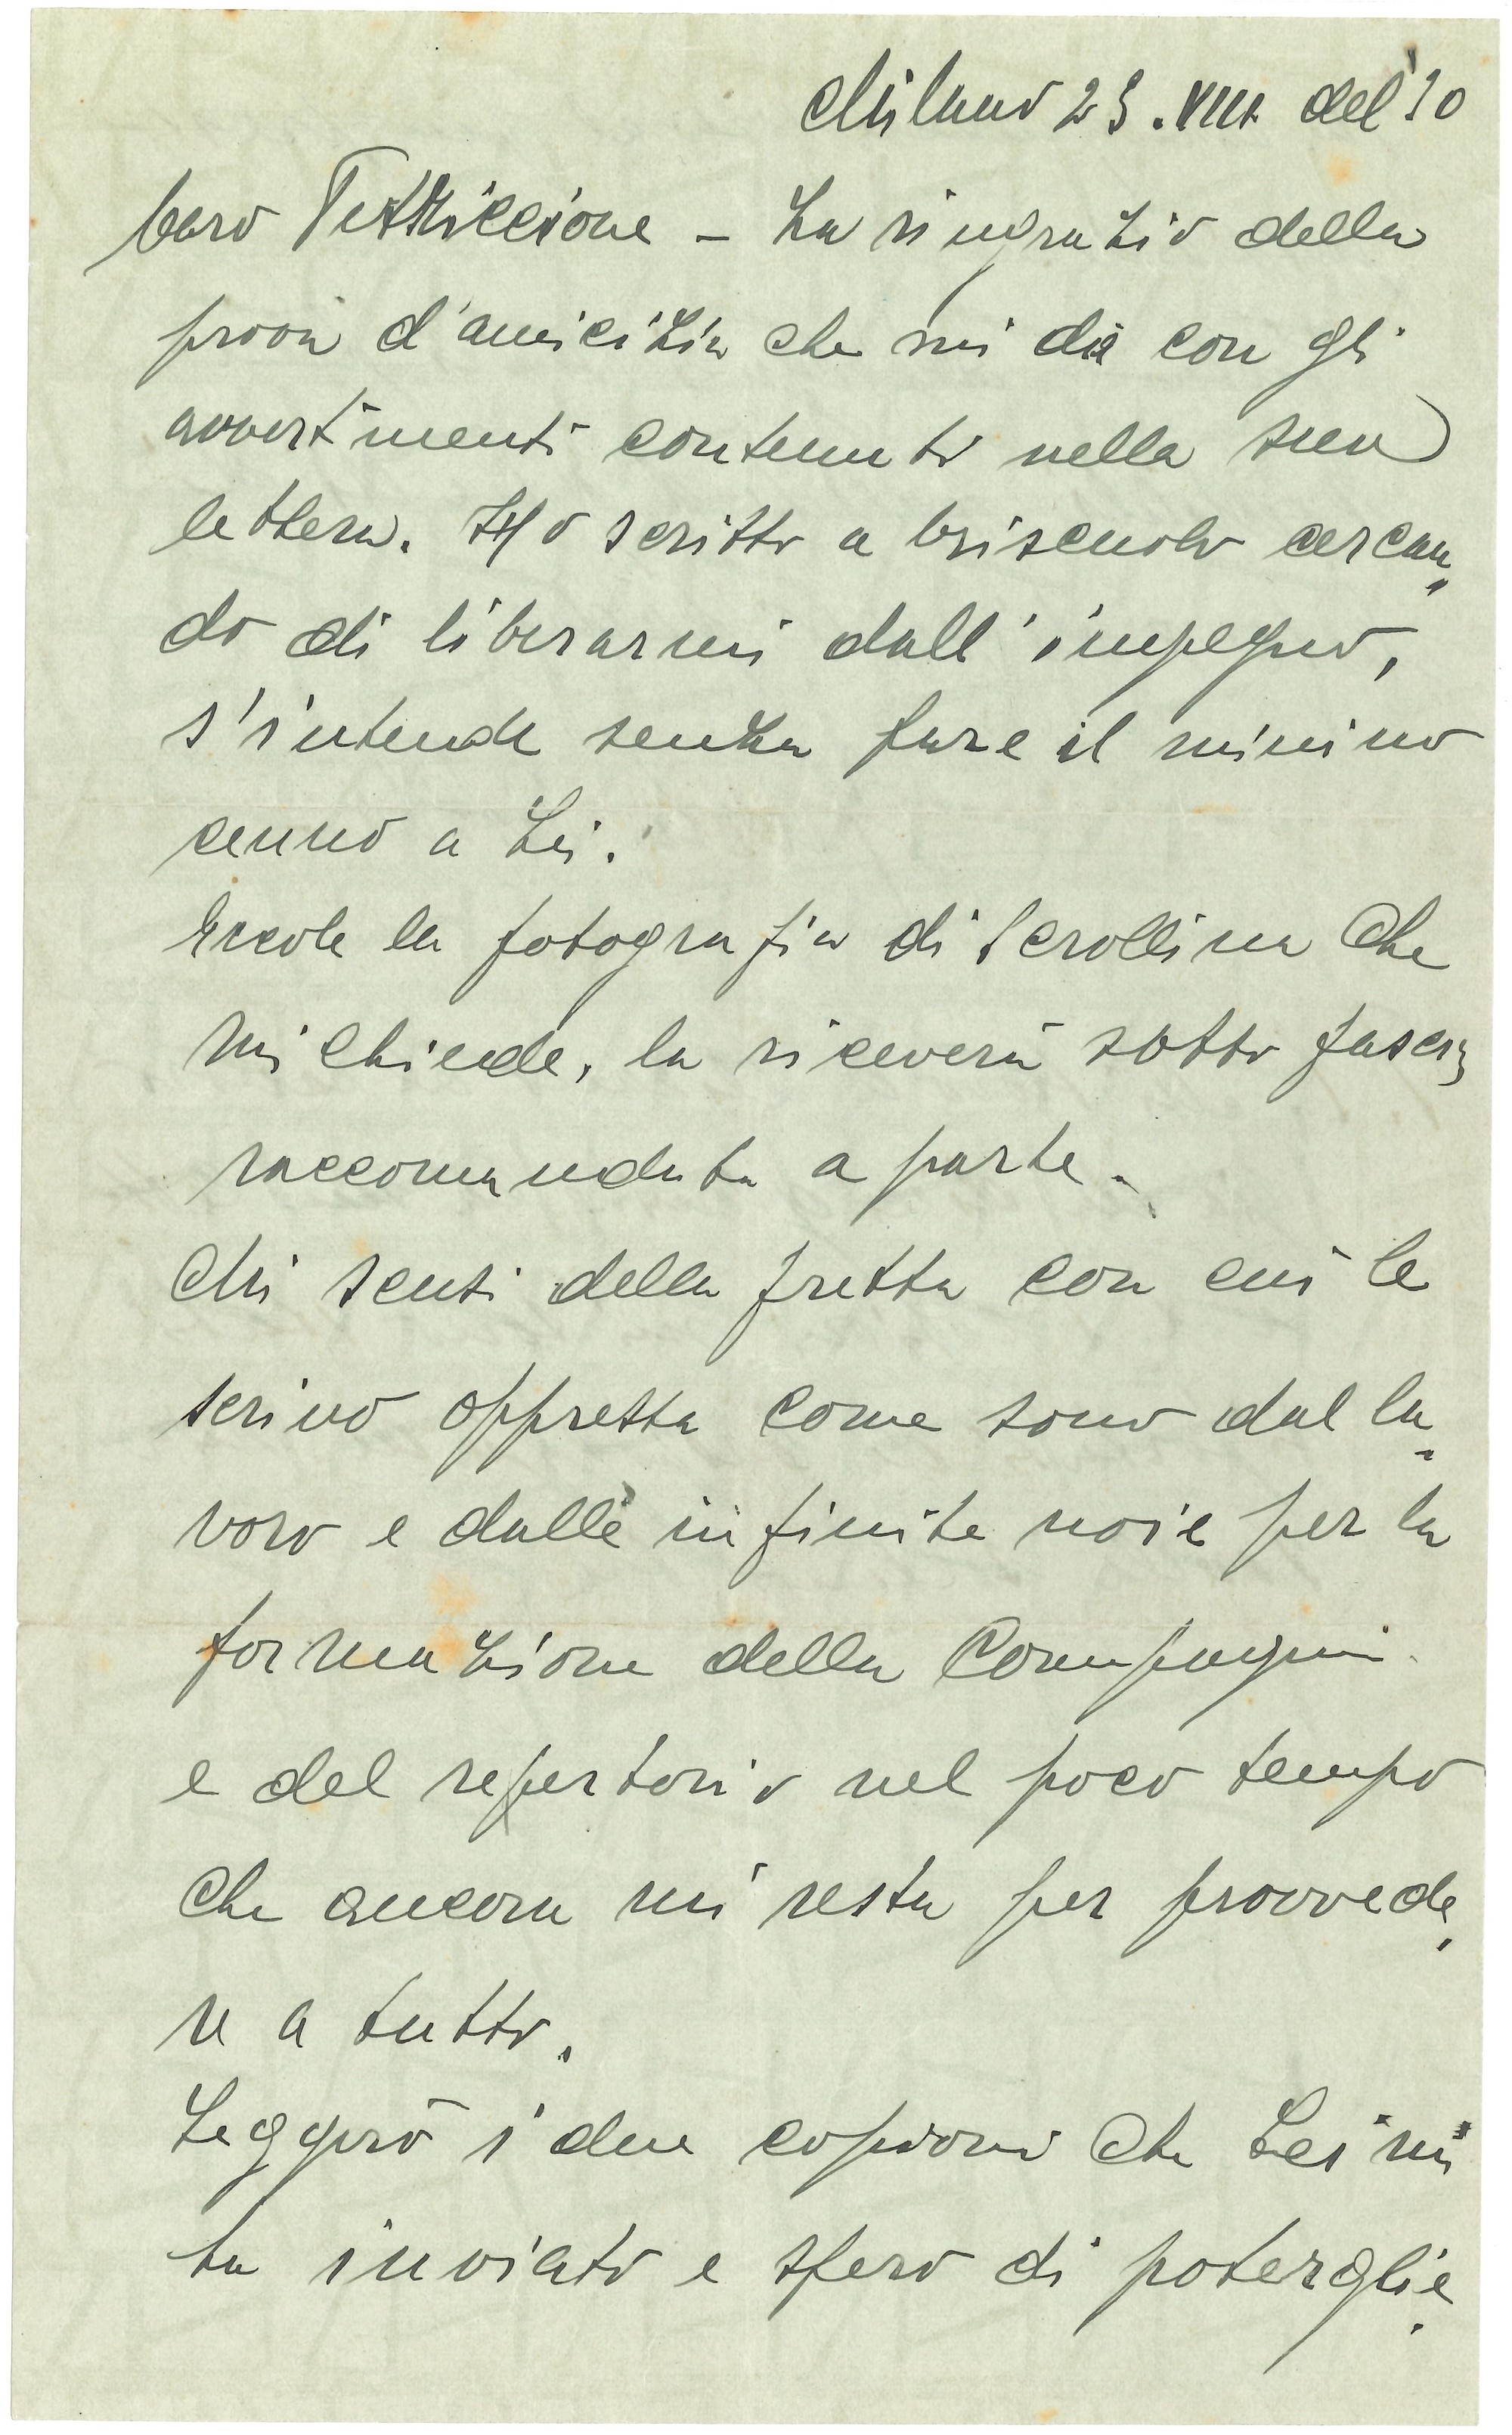 Milano 29.VIII. del '30
Caro Petriccione – La ringrazio della
prova d'amicizia che mi dà con gli
avvertimenti contenuti nella sua
lettera. Ho scritto a Criscuolo cercan„
do di liberarmi dall'impegno,
s'intende senza fare il minimo
cenno a Lei.
Eccole la fotografia di Scrollina che
mi chiede, la riceverà sotto fascia
raccomandata a parte.
Mi scusi della fretta con cui le
scrivo oppressa come sono dal la-
voro e dalle infinite noie per la
formazione della Compagnia
e del repertorio nel poco tempo
che ancora mi resta per provvede,
re a tutto.
Leggerò i due copioni che Lei mi
ha inviato e spero di poterglie